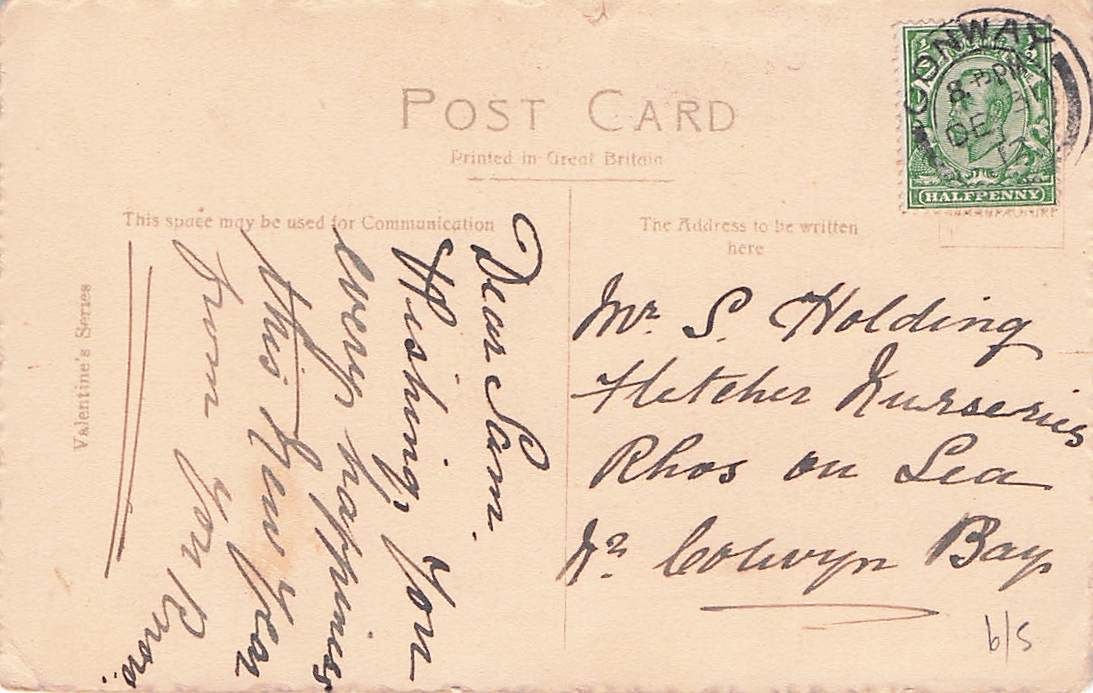 POST CARD
Printed in Great Britain
This space may be used for Communication
The Address to be written
here
Valentine's Series
CONWAY
8. PM
DE
HALFPENNY
Dear Sam.
Wishing you
every happiness
this New Year
from you know
Mr. S. Holding
Fletcher Nurseries
Rhos on Sea
Nr. Colwyn Bay
6/5